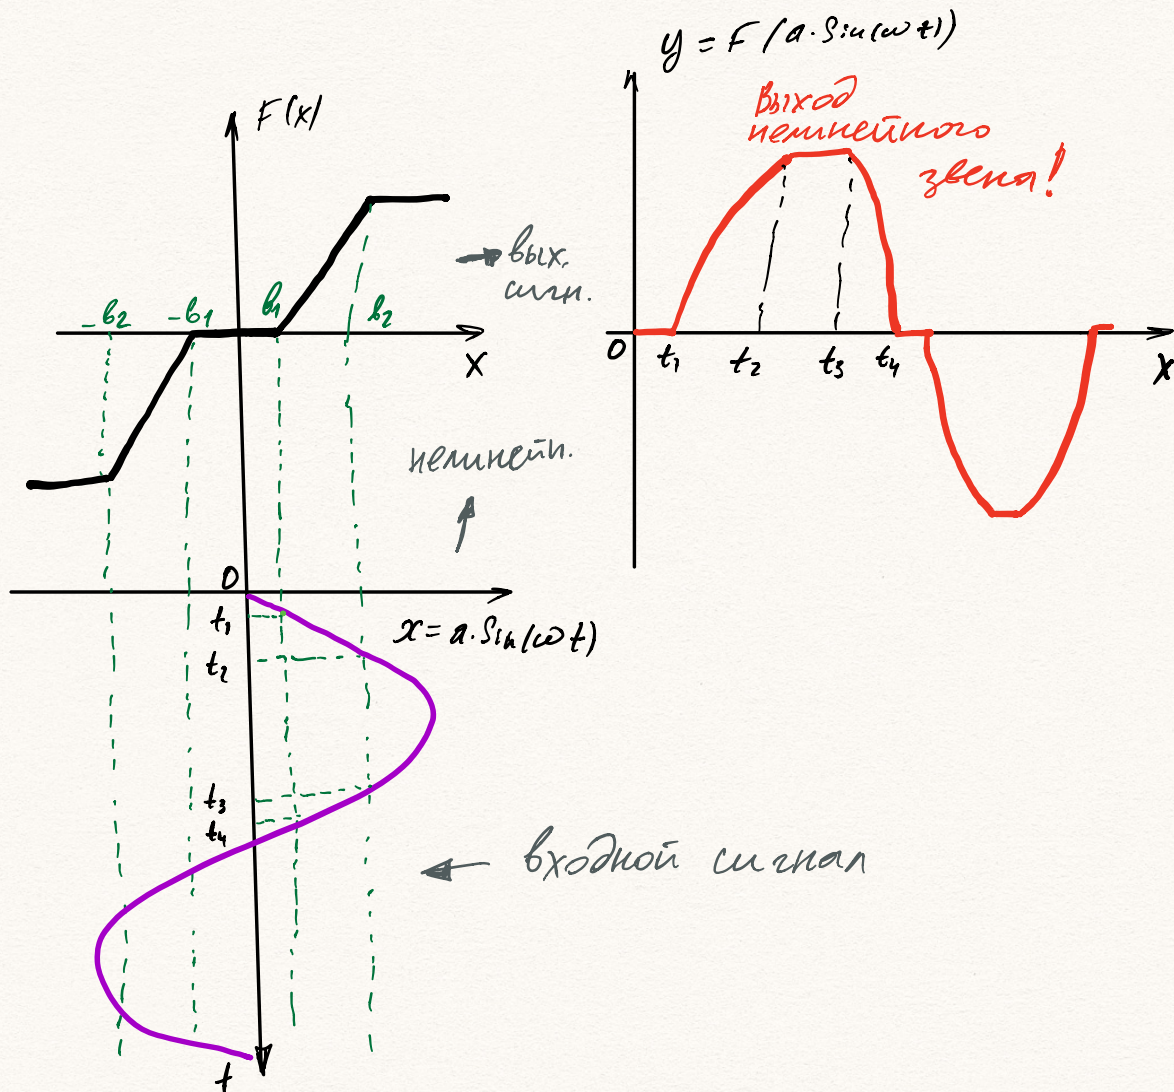 F(x)
-b2 -b1 b1 b2
x
→ вых.
сигн.
нелинейн.
0
t1
t2
x = a·Sin(ωt)
t3
t4
← входной сигнал
t
y = F(a·Sin(ωt))
Выход
нелинейного
звена!
0 t1 t2 t3 t4
x